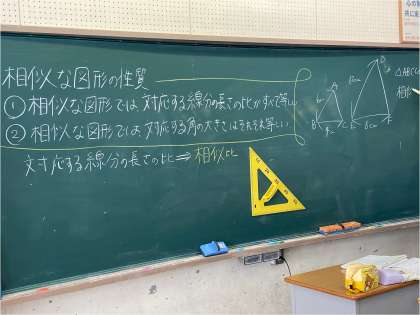 相似な図形の性質
① 相似な図形では対応する線分の長さの比がすべて等しい
② 相似な図形では対応する角の大きさはそれぞれ等しい
対応する線分の長さの比⇒相似比
△ABC
相似
D
A
B
C
E
F